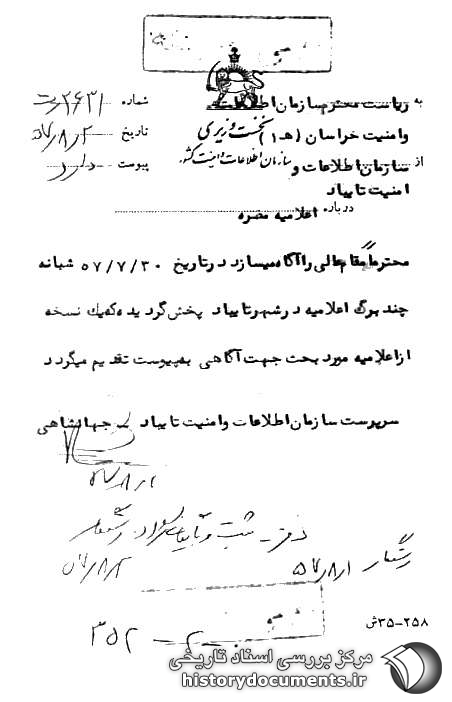 نخست وزیری
سازمان اطلاعات و امنیت کشور
به ریاست محترم سازمان اطلاعات
وامنیت خراسان (هـ ۱)
از سازمان اطلاعات و
امنیت تایباد
درباره اعلامیه مضره
شماره ۲۶۳۱
تاریخ ۵۷/۸/۲
پیوست دارد
محترما مقام عالی را آگاه میسازد در تاریخ ۵۷/۷/۳۰ شبانه
چند برگ اعلامیه در شهر تایباد پخش گردیده که یک نسخه
از اعلامیه مورد بحث جهت آگاهی به پیوست تقدیم میگردد
سرپرست سازمان اطلاعات وامنیت تایباد ـ جهانشاهی
۵۷/۸/۱
دفتر ثبت و
۵۷/۸/۲
رستگار ۵۷/۸/۱
۳۵۲ - ۲
۲۵۸-۳۵ش
مرکز بررسی اسناد تاریخی
historydocuments.ir